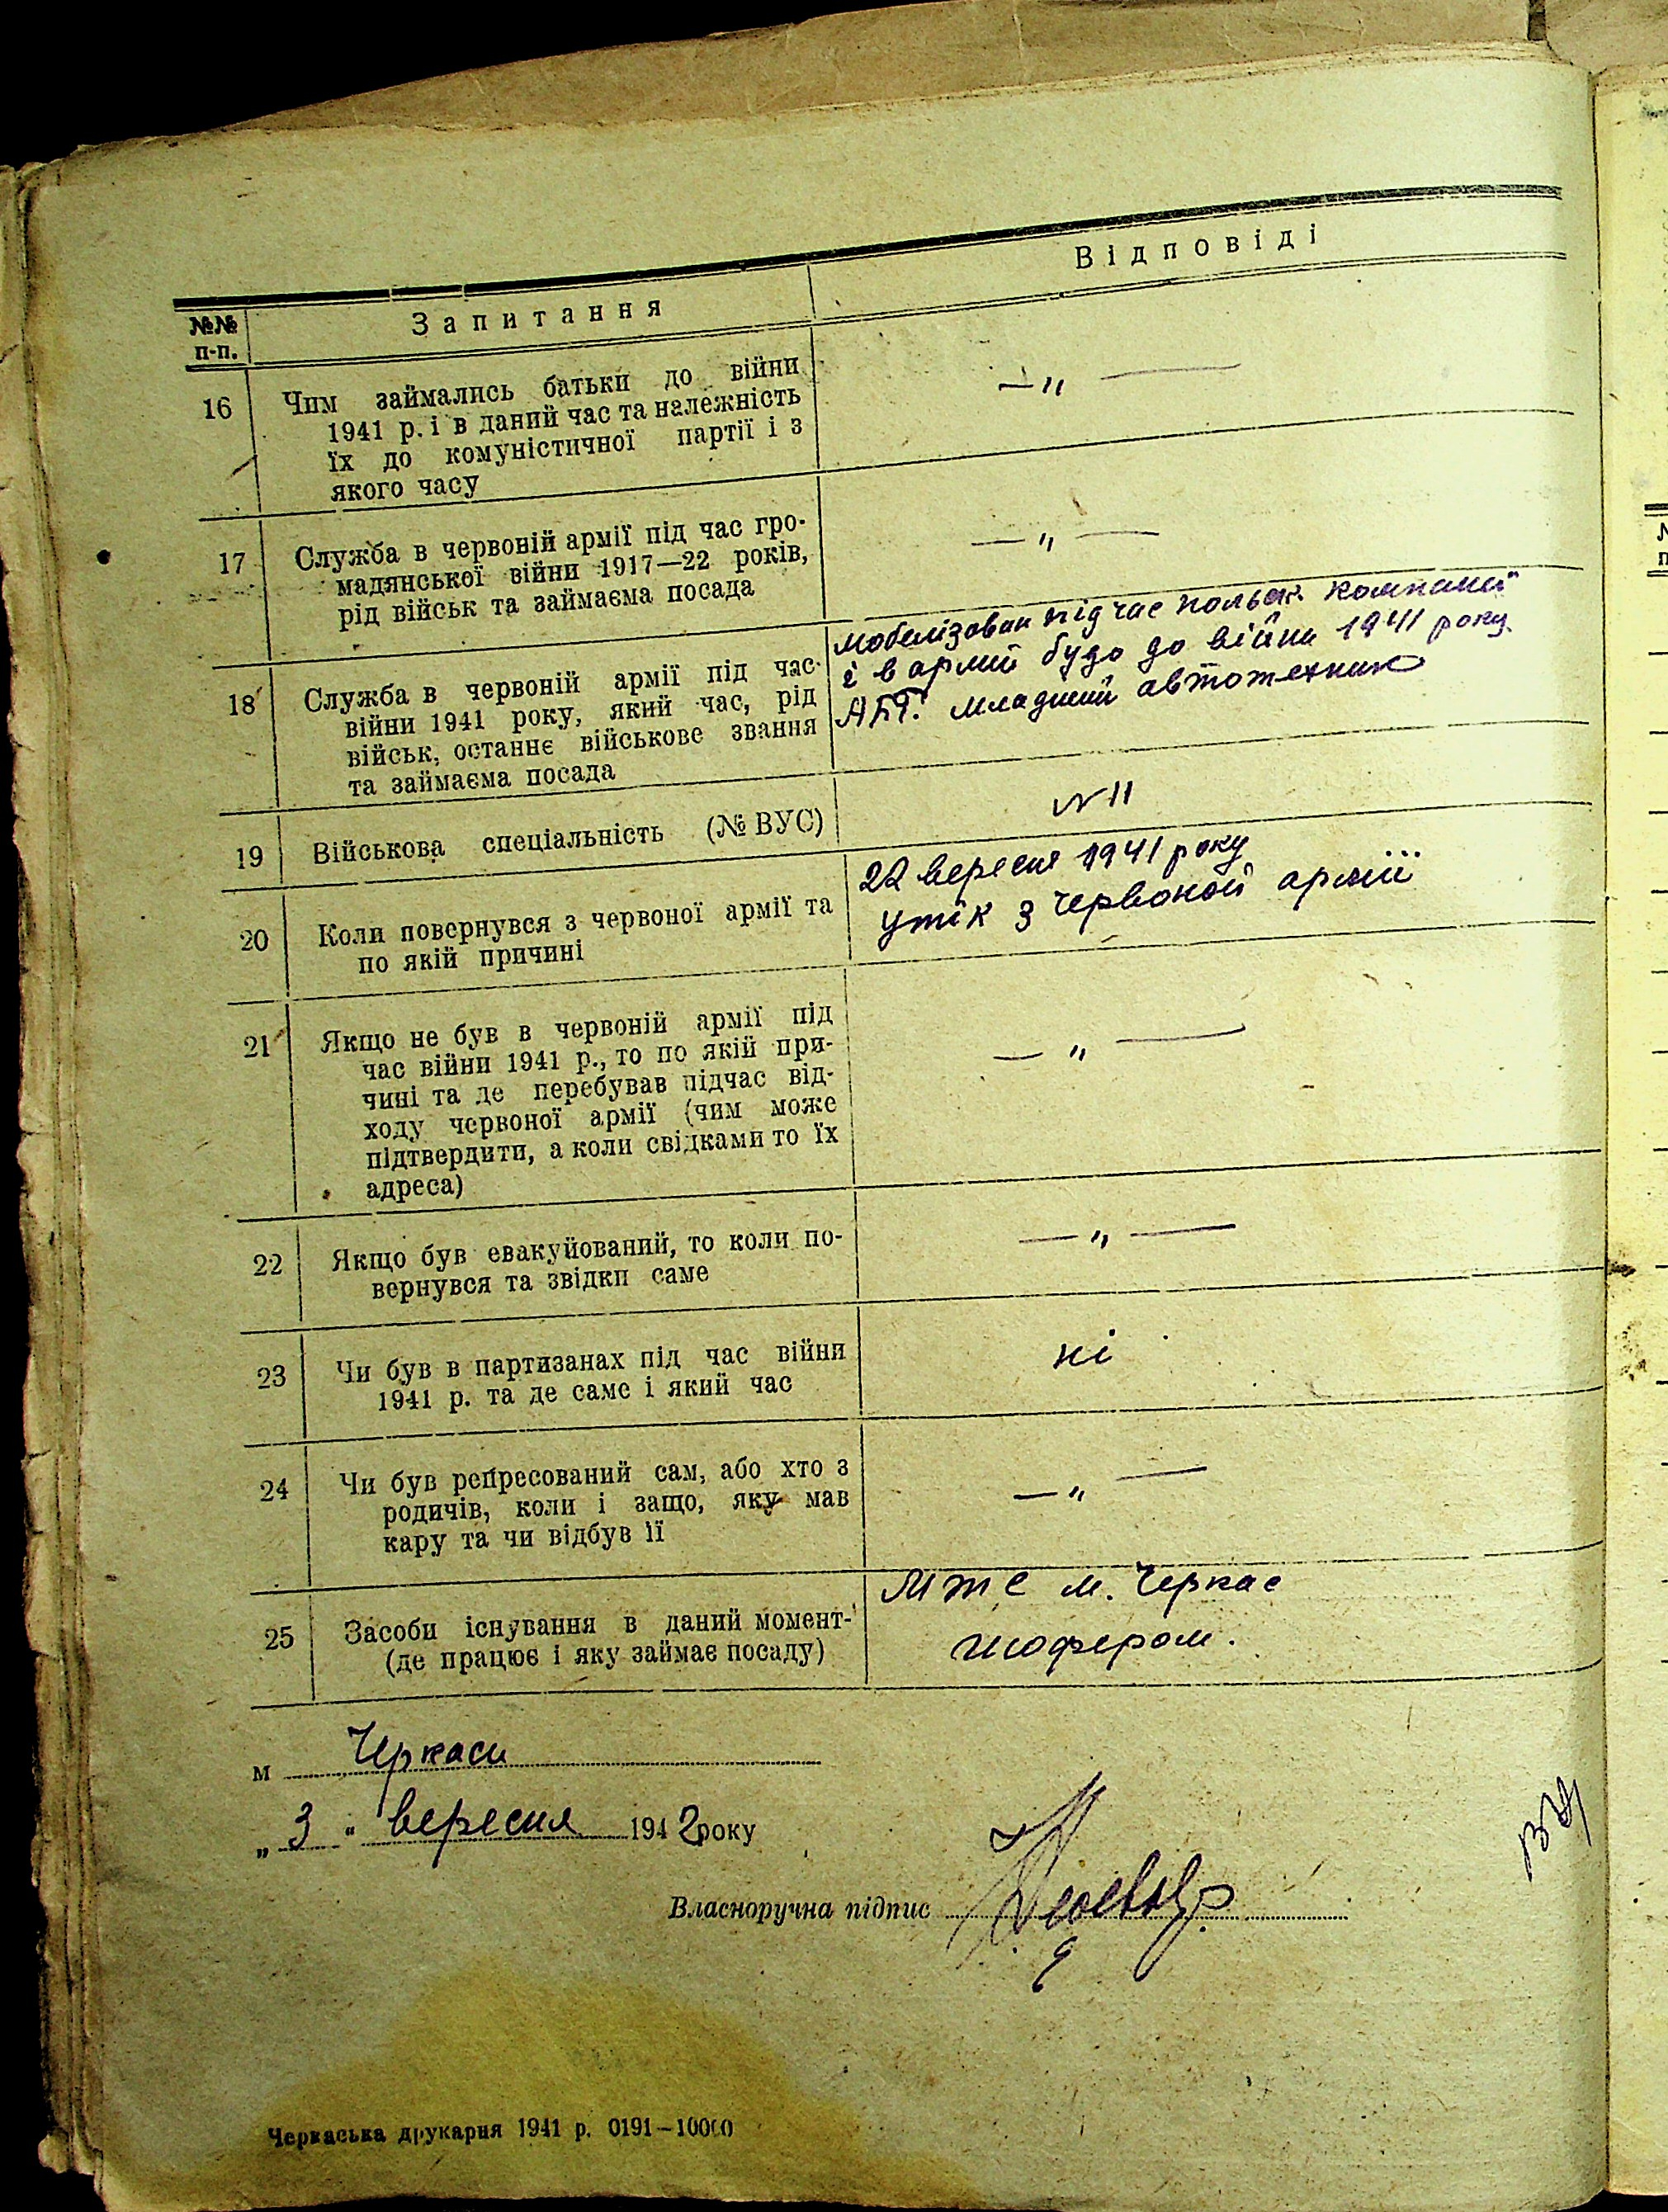 №№ п-п.
Запитання
Відповіді
16
Чим займались батьки до війни
1941 р. і в даний час та належність
їх до комуністичної партії і з
якого часу
— „ —
17
Служба в червоній армії під час гро-
мадянської війни 1917—22 років,
рід військ та займаєма посада
— „ —
18
Служба в червоній армії під час
війни 1941 року, який час, рід
військ, останнє військове звання
та займаєма посада
мобелізован під час польск. компании
і в армии будо до війни 1941 року
младший автотехник
19
Військова спеціальність (№ ВУС)
N 11
20
Коли повернувся з червоної армії та
по якій причині
22 вересня 1941 року
утік з Червоной армії
21
Якщо не був в червоній армії під
час війни 1941 р., то по якій при-
чині та де перебував підчас від-
ходу червоної армії (чим може
підтвердити, а коли свідками то їх
адреса)
— „ —
22
Якщо був евакуйований, то коли по-
вернувся та звідки саме
— „ —
23
Чи був в партизанах під час війни
1941 р. та де саме і який час
ні
24
Чи був репресований сам, або хто з
родичів, коли і защо, яку мав
кару та чи відбув її
— „ —
25
Засоби існування в даний момент-
(де працює і яку займає посаду)
М Т С м. Черкас
шофером.
м Черкаси
„ 3 “ вересня 1942 року
Власноручна підпис
Черкаська друкарня 1941 р. 0191—10000